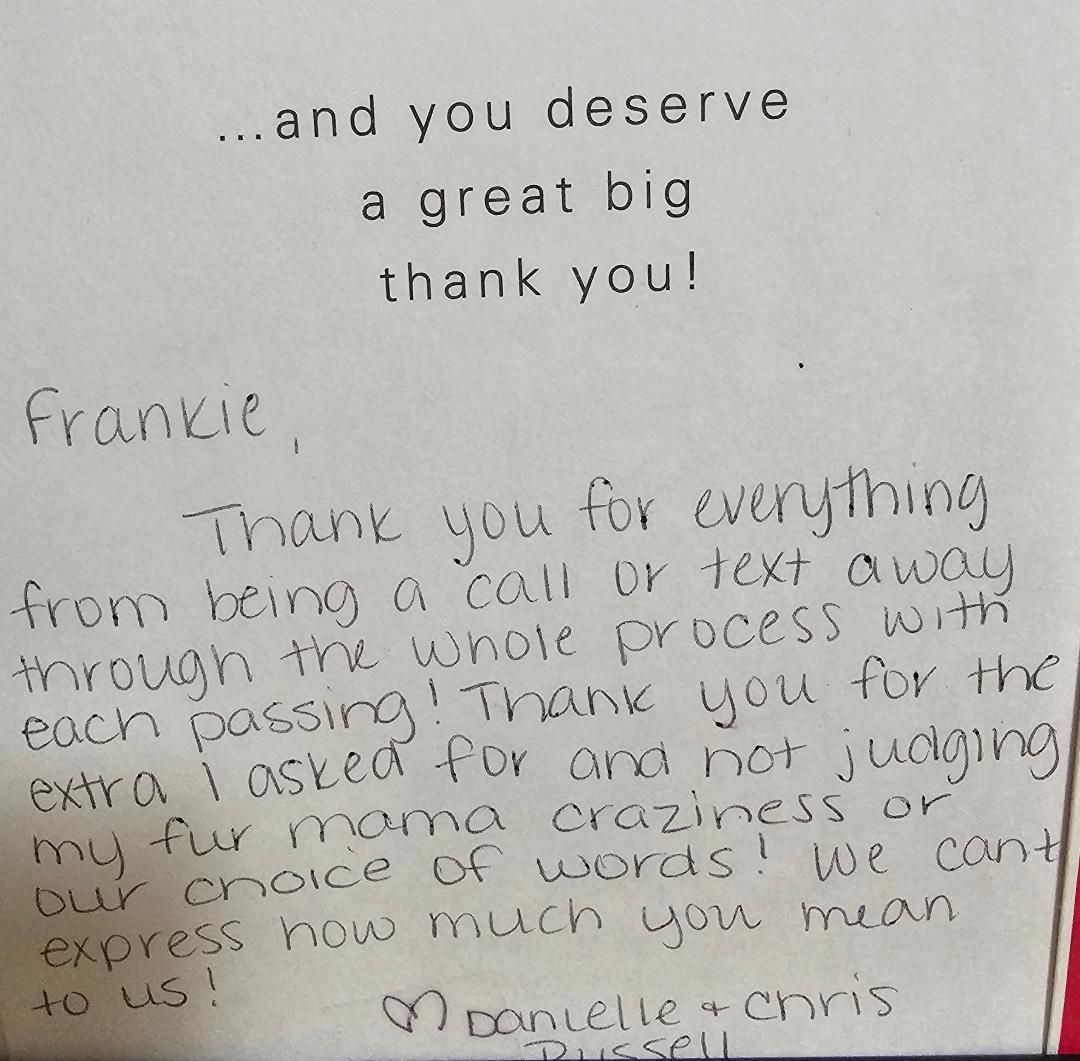 ...and you deserve
a great big
thank you!
Frankie,
Thank you for everything
from being a call or text away
through the whole process with
each passing! Thank you for the
extra I asked for and not judging
my fur mama craziness or
our choice of words! We cant
express how much you mean
to us!
♡ Danielle + Chris
Russell